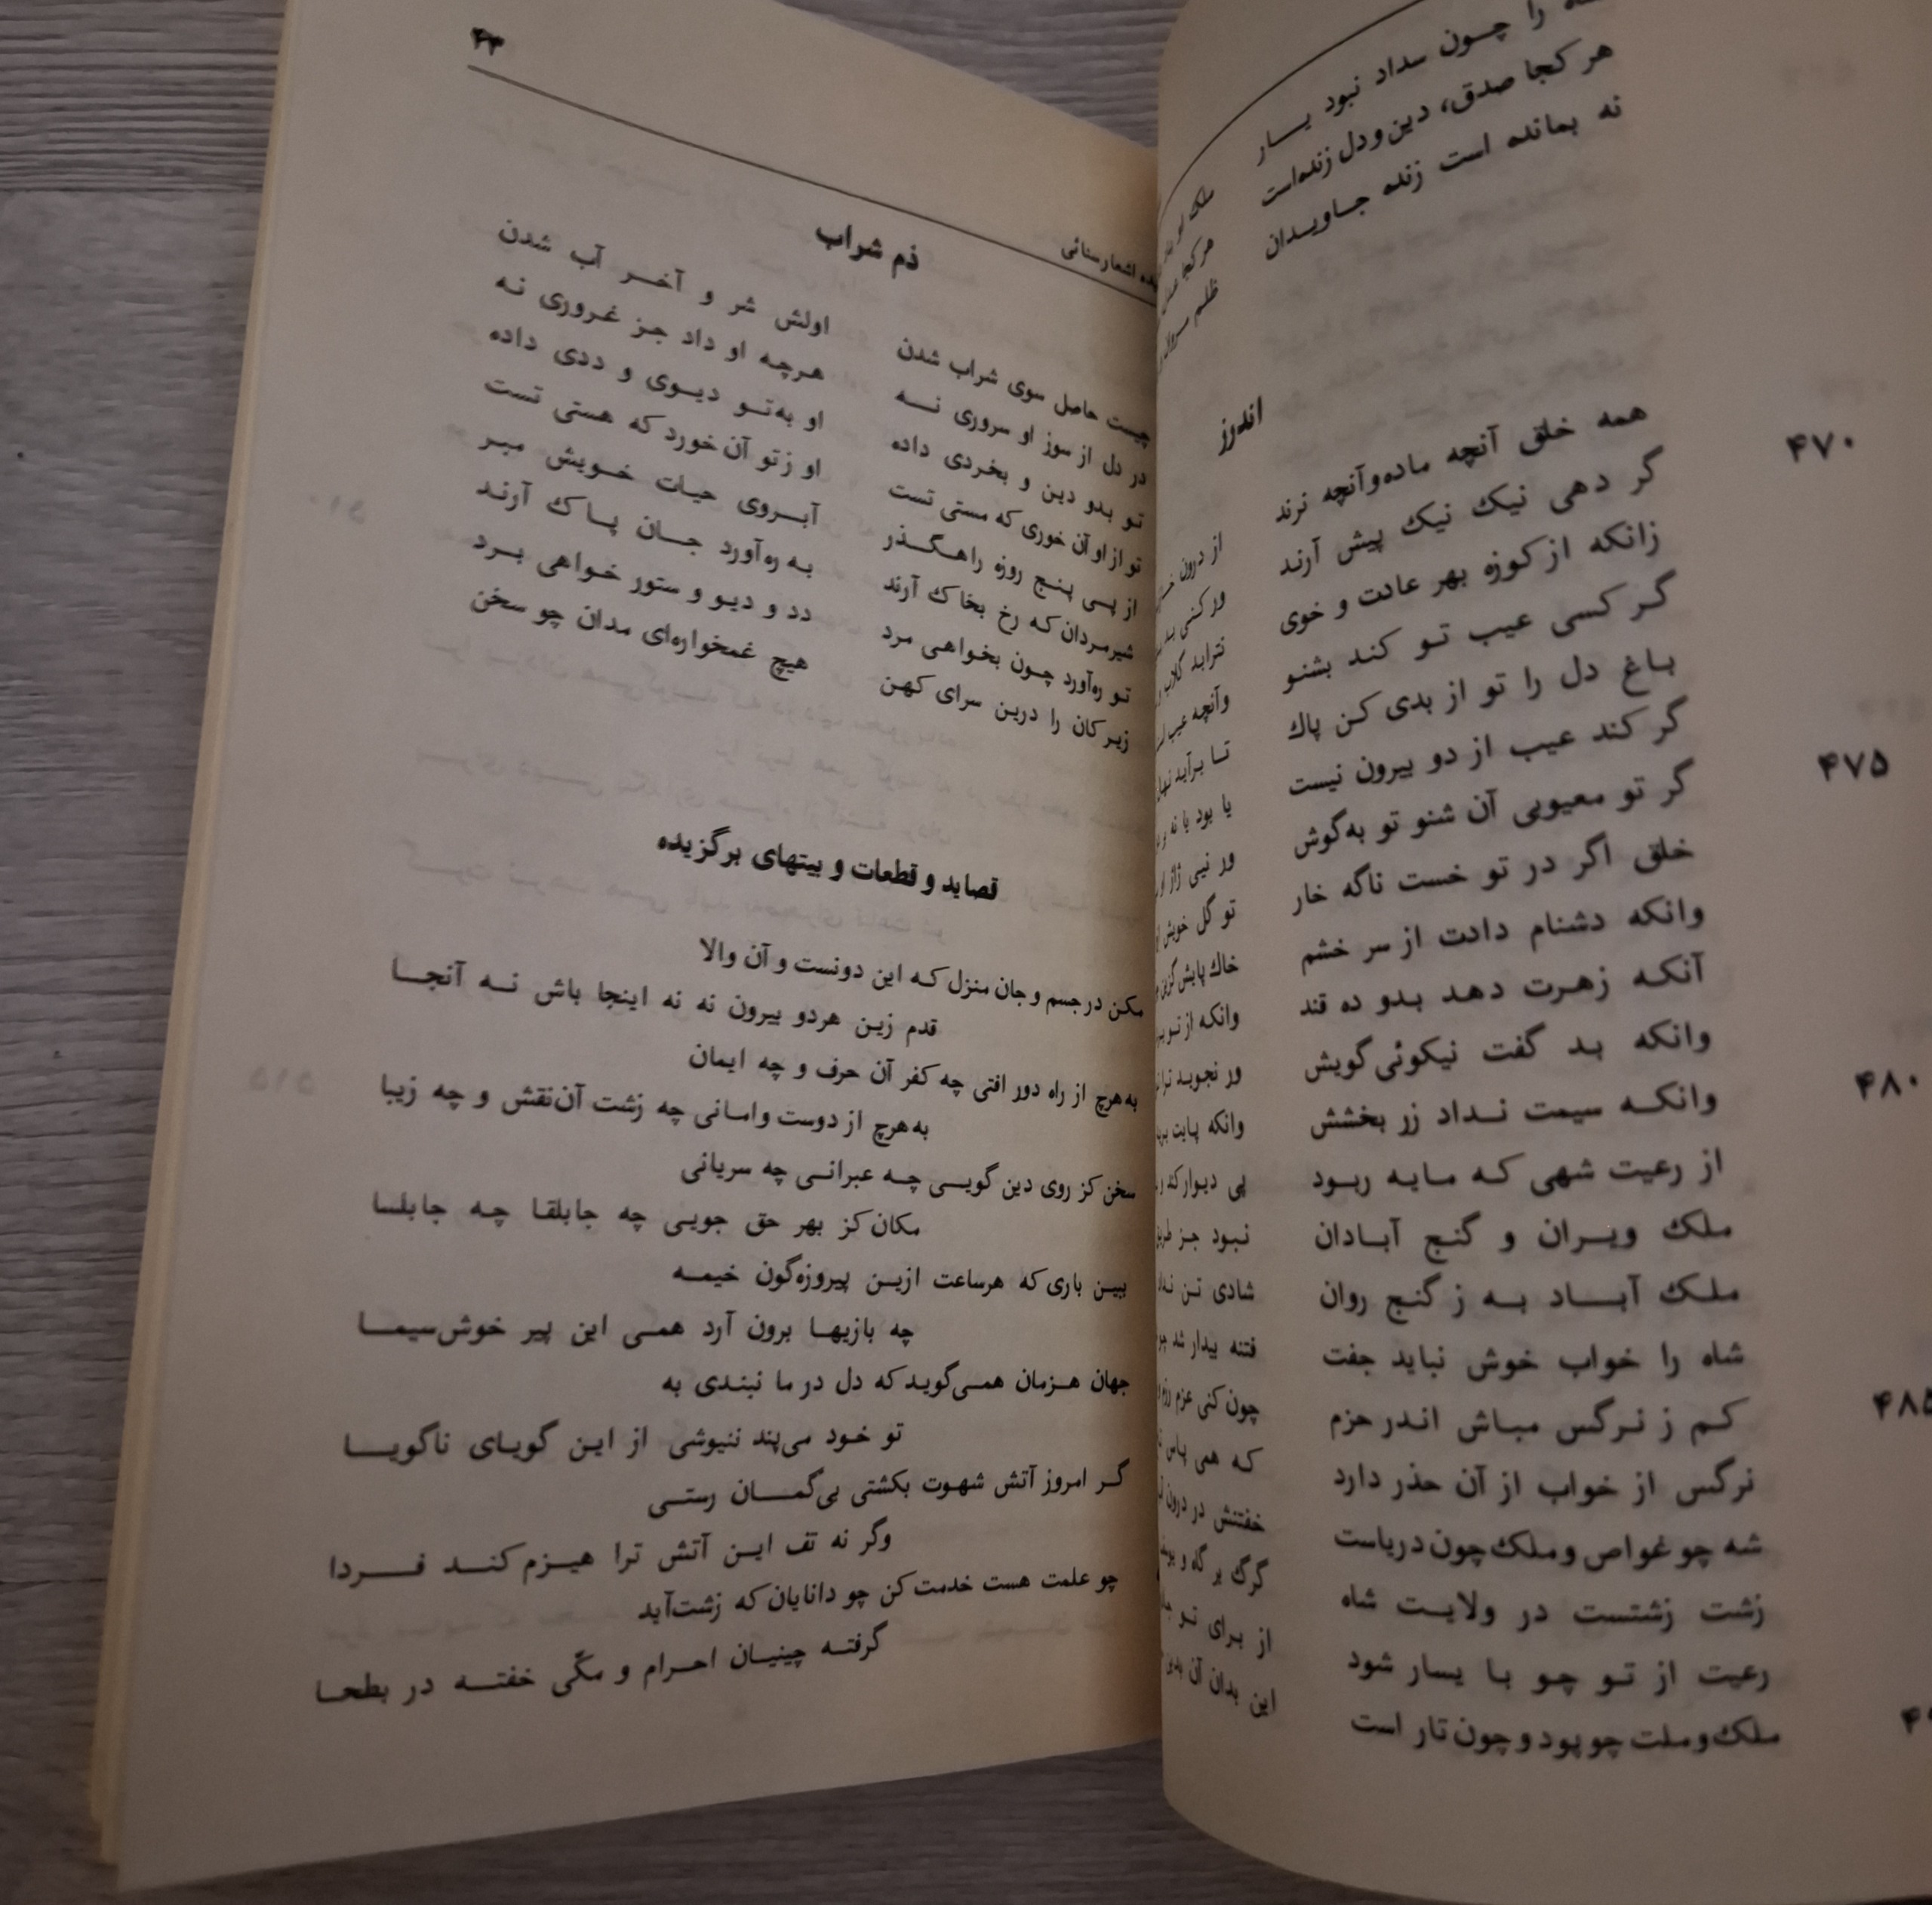 را چون سداد نبود یار
هر کجا صدق، دین و دل زنده‌است
نه بمانده است زنده جاویدان
اندرز
همه خلق آنچه ماده و آنچه نرند
از درون
۴۷۰
گر دهی نیک نیک پیش آرند
ور کنی بد
زانکه از کوزه بهر عادت و خوی
نترابد گلاب
گر کسی عیب تو کند بشنو
وآنچه عیب
باغ دل را تو از بدی کن پاک
تا برآید نهال
گر کند عیب از دو بیرون نیست
یا بود یا نه
۴۷۵
گر تو معیوبی آن شنو تو به‌گوش
ور نیی ژاژ او
خلق اگر در تو خست ناگه خار
تو گل خویش
وانکه دشنام دادت از سر خشم
خاک پایش گزین
آنکه زهرت دهد بدو ده قند
وانکه از تو
وانکه بد گفت نیکوئی گویش
ور نجوید ترا
۴۸۰
وانکه سیمت نداد زر بخشش
وانکه پایت
از رعیت شهی که مایه ربود
پی دیوار کند
ملک ویران و گنج آبادان
نبود جز طریق
ملک آباد به ز گنج روان
شادی تن
شاه را خواب خوش نباید جفت
فتنه بیدار شد
۴۸۵
کم ز نرگس مباش اندر حزم
چون کنی عزم رزم
نرگس از خواب از آن حذر دارد
که همی پاس
شه چو غواص و ملک چون دریاست
خفتنش در درون
زشت زشتست در ولایت شاه
گرگ بر گاه و
رعیت از تو چو با یسار شود
از برای تو
ملک و ملت چو پود و چون تار است
این بدان آن بدین
اشعار سنائی
۴۳
ذم شراب
چیست حاصل سوی شراب شدن
اولش شر و آخر آب شدن
در دل از سوز او سروری نه
هرچه او داد جز غروری نه
تو بدو دین و بخردی داده
او به‌تو دیوی و ددی داده
تو از او آن خوری که مستی تست
او ز تو آن خورد که هستی تست
از پی پنج روزه راهگذر
آبروی حیات خویش مبر
شیرمردان که رخ بخاک آرند
به ره‌آورد جان پاک آرند
تو ره‌آورد چون بخواهی مرد
دد و دیو و ستور خواهی برد
زیرکان را درین سرای کهن
هیچ غمخواره‌ای مدان چو سخن
قصاید و قطعات و بیتهای برگزیده
مکن در جسم و جان منزل که این دونست و آن والا
قدم زین هردو بیرون نه نه اینجا باش نه آنجا
به هرچ از راه دور افتی چه کفر آن حرف و چه ایمان
به هرچ از دوست وامانی چه زشت آن‌نقش و چه زیبا
سخن کز روی دین گویی چه عبرانی چه سریانی
مکان کز بهر حق جویی چه جابلقا چه جابلسا
ببین باری که هرساعت ازین پیروزه‌گون خیمه
چه بازیها برون آرد همی این پیر خوش‌سیما
جهان هزمان همی‌گوید که دل در ما نبندی به
تو خود می‌پند ننیوشی از این گویای ناگویا
گر امروز آتش شهوت بکشتی بی‌گمان رستی
وگر نه تف این آتش ترا هیزم کند فردا
چو علمت هست خدمت کن چو دانایان که زشت‌آید
گرفته چینیان احرام و مکّی خفته در بطحا